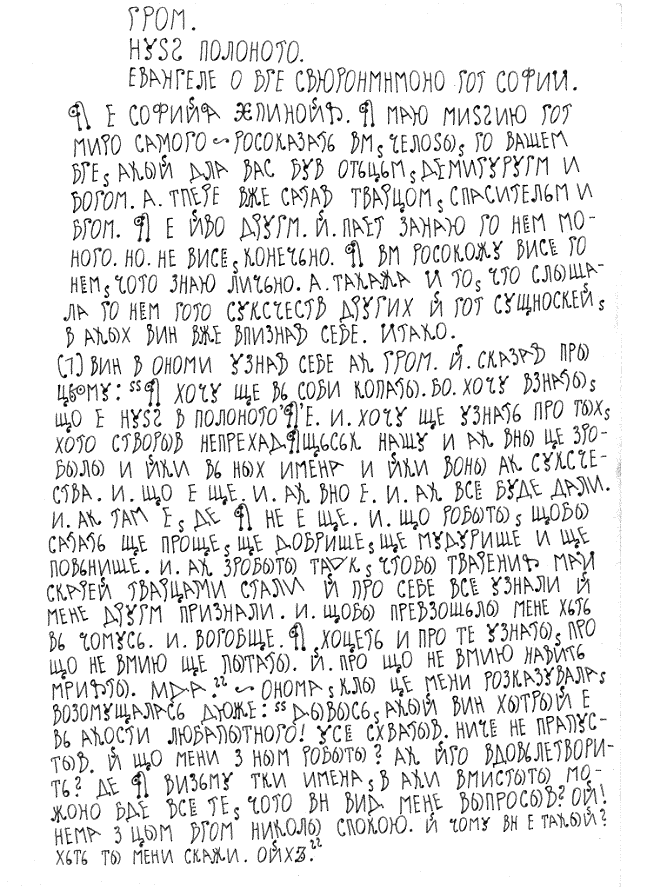 ГРОМ.
НУЅЅ ПОЛОНОТО.
ЕВАНГЕЛЕ О БГЕ СВЮРОНМНМОНО ГОТ СОФИИ.
¶ Е СОФИЙА ¶ МАЮ МИЅИЮ ГОТ
МИРО САМОГО ~ РОСОКАЗАТЬ ВМ, ЧЕЛОЅЫ, ГО ВАШЕМ
БГЕ, АКЫЙ ДЛА ВАС БУВ ОТЬЦЬМ, ДЕМИГУРУГМ И
БОГОМ. А. ТПЕРЕ ВЖЕ САТАВ ТВАРЦОМ, СПАСИТЕЛЬМ И
БГОМ. ¶ Е ЙВО ДРУГМ. Й. ЗАНАЮ ГО НЕМ МО-
НОГО. НО. НЕ ВИСЕ, КОНЕЧЬНО. ¶ ВМ РОСОКОЖУ ВИСЕ ГО
НЕМ, ЧОТО ЗНАЮ ЛИЧЬНО. А. ТАКАЖА И ТО, ЧТО СЛЫША-
ЛА ГО НЕМ ГОТО СУКСЧЕСТВ ДРУГИХ Й ГОТ СУЩНОСКЕЙ,
В АКЫХ ВИН ВЖЕ ВПИЗНАВ СЕБЕ. ИТАКО.
ВИН В ОНОМИ УЗНАВ СЕБЕ АК ГРОМ. Й. СКАЗАВ ПРЫ
ЦЬОМУ: “¶ ХОЧУ ЩЕ ВЬ СОБИ КОПАТЫ. БО. ХОЧУ ВЗНАТЫ,
ЩО Е НУЅЅ В ПОЛОНОТО ¶ Е. И. ХОЧУ ЩЕ УЗНАТЬ ПРО ТЫХ,
ХОТО СТВОРЫВ НАШУ И АК ВНЫ ЦЕ ЗРО-
БЫЛЫ И ЙКИ ВЬ НЫХ ИМЕНА И ЙКИ ВОНЫ АК СУКСЧЕ-
СТВА. И. ЩО Е ЩЕ. И. АК ВНО Е. И. АК ВСЕ БУДЕ ДАЛИ.
И. АК ТАМ Е, ДЕ ¶ НЕ Е ЩЕ. И. ЩО РОБЫТЫ, ЩОБЫ
САТАТЬ ЩЕ ПРОЩЕ, ЩЕ ДОБРИШЕ, ЩЕ МУДУРИШЕ И ЩЕ
ПОВЬНИШЕ. И. АК ЗРОБЫТЫ ТАК, ЧТОБЫ ТВАРЕНИА МАЙ
СКАРЕЙ ТВАРЦАМИ СТАЛИ Й ПРО СЕБЕ ВСЕ УЗНАЛИ Й
МЕНЕ ДРУГМ ПРИЗНАЛИ. И. ЩОБЫ ПРЕВЗОШЬЛЫ МЕНЕ ХЬТЬ
ВЬ ЧОМУСЬ. И. ВОГОБЩЕ. ¶, ХОЦЕТЬ И ПРО ТЕ УЗНАТЫ, ПРО
ЩО НЕ ВМИЮ ЩЕ ПЫТАТЫ. Й. ПРО ЩО НЕ ВМИЮ НАВИТЬ
МРИАТЫ. МДА.” ~ ОНОМА, КЛЫ ЦЕ МЕНИ РОЗКАЗУВАЛА,
ВОЗОМУЩАЛАСЬ ДЮЖЕ: “ДЫВЫСЬ, АКЫЙ ВИН ХЫТРЫЙ Е
ВЬ АКОСТИ ЛЮБАПЫТНОГО! УСЕ СХВАТЫВ. НИЧЕ НЕ ПРАПУС-
ТЫВ. Й ЩО МЕНИ З НЫМ РОБЫТЫ? АК ЙГО ВДОВЬЛЕТВОРИ-
ТЬ? ДЕ ¶ ВИЗЬМУ ТКИ ИМЕНА, В АКИ ВМИСТЫТЫ МО-
ЖОНО БДЕ ВСЕ ТЕ, ЧОТО ВН ВИД МЕНЕ ВЫПРОСЫВ? ОЙ!
НЕМА З ЦЫМ БГОМ НИКОЛЫ СПОКОЮ. Й ЧОМУ ВН Е ТАКЫЙ?
ХЬТЬ ТЫ МЕНИ СКАЖИ. ОЙХЗ.”